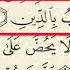 بُ بِٱلدِّينِ
لَا يَحُضُّ عَلَىٰ